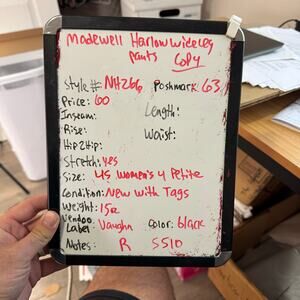 Madewell Harlow wide leg
pants Copy
Style # NH266 Poshmark: 63
Price: 60
Length:
Inseam:
Rise:
Waist:
Hip2Hip:
Stretch: yes
Size: 4S Women's 4 Petite
Condition: New with Tags
Weight: 15oz
Vendoo
Label: Vaughn Color: black
Notes: R SS10